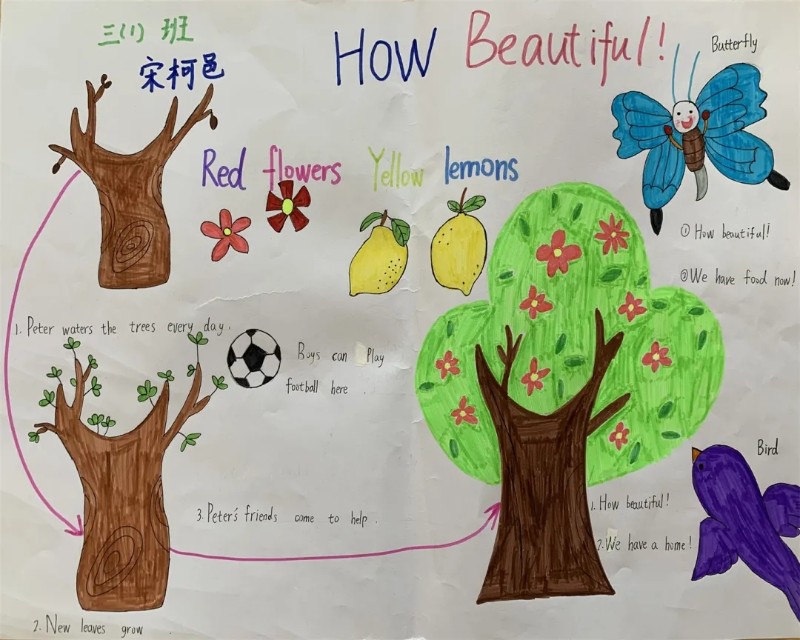 三(1) 班
宋柯邑
How Beautiful!
Butterfly
Red flowers Yellow lemons
① How beautiful!
② We have food now!
1. Peter waters the trees every day.
Boys can Play
football here.
Bird
3. Peter's friends come to help.
1. How beautiful!
2. We have a home!
2. New leaves grow